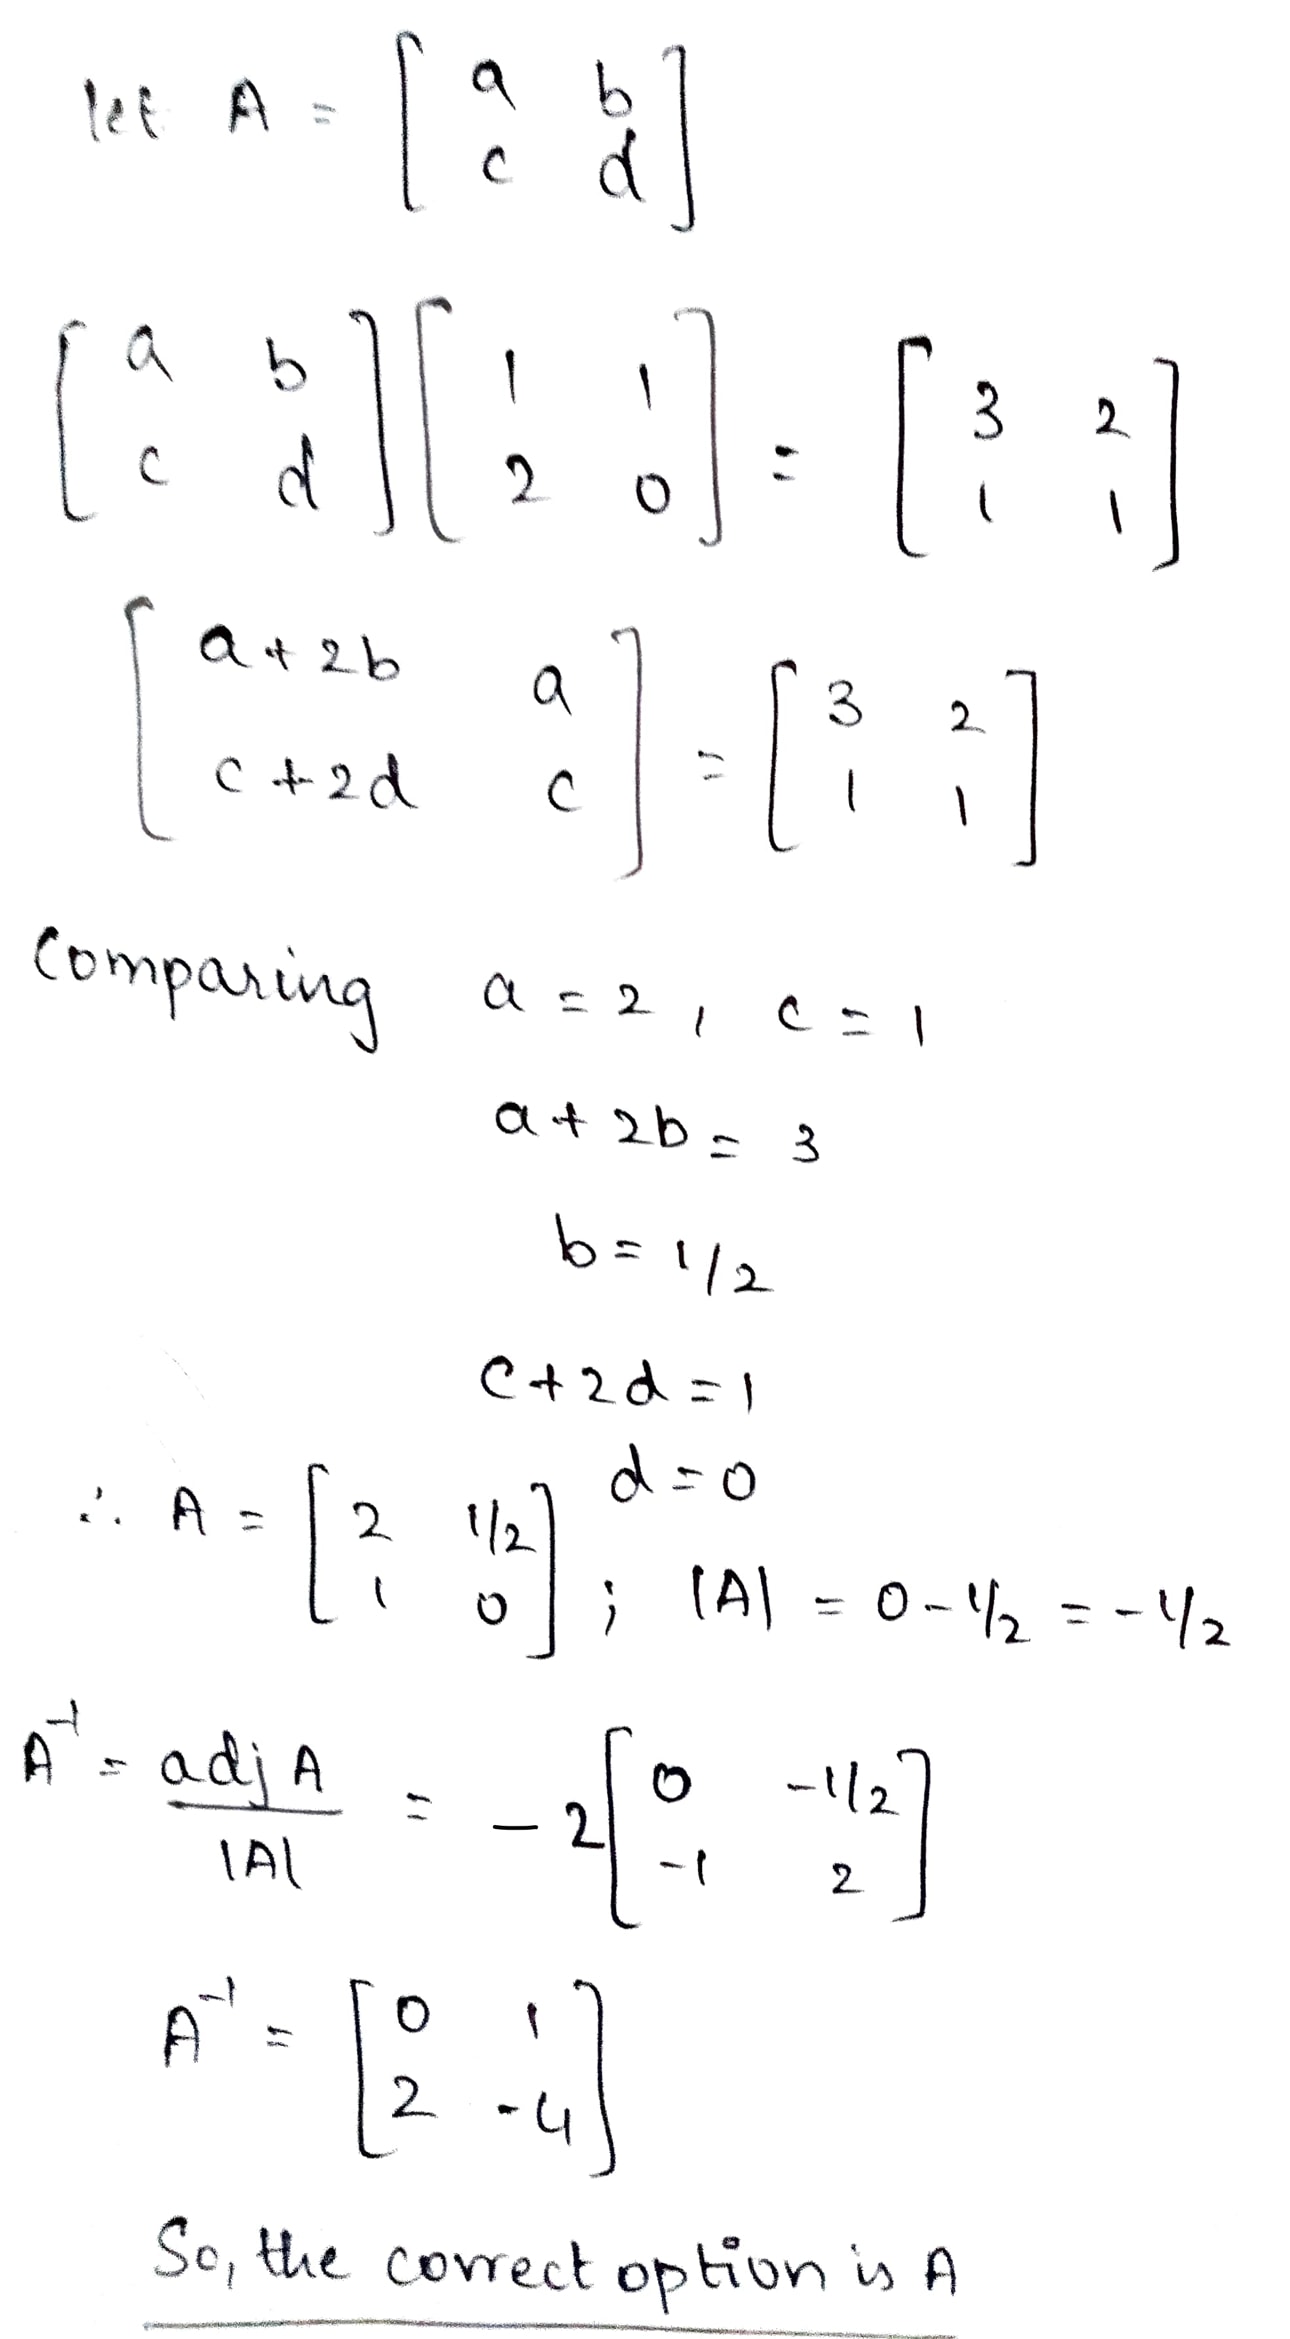 let A = [ a b
c d ]
[ a b
c d ] [ 1 1
2 0 ] = [ 3 2
1 1 ]
[ a+2b a
c+2d c ] = [ 3 2
1 1 ]
Comparing a = 2, c = 1
a+2b = 3
b = 1/2
c+2d = 1
d = 0
∴ A = [ 2 1/2
1 0 ] ; |A| = 0 - 1/2 = -1/2
A⁻¹ = adj A / |A| = -2 [ 0 -1/2
-1 2 ]
A⁻¹ = [ 0 1
2 -4 ]
So, the correct option is A